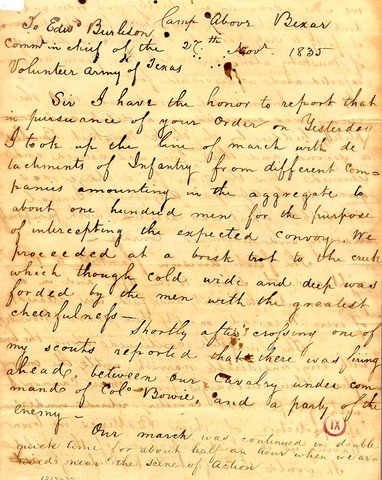 To Edwd Burlison Camp Above Bexar
Commr in chief of the 27th Novr 1835
Volunteer Army of Texas
Sir I have the honor to report that
in pursuance of your Order on Yesterday
I took up the line of march with de
tachments of Infantry from different Com-
panies amounting in the aggregate to
about one hundred men for the purpose
of intercepting the expected convoy. We
proceeded at a brisk trot to the creek
which though cold wide and deep was
forded by the men with the greatest
cheerfulness—
Shortly after crossing one of
my scouts reported that there was firing
ahead, between our Cavalry under com-
mand of Colo Bowie, and a party of the
Enemy—
Our march was continued in double
quick time for about half an hour when we ar-
rived near the scene of Action
IX